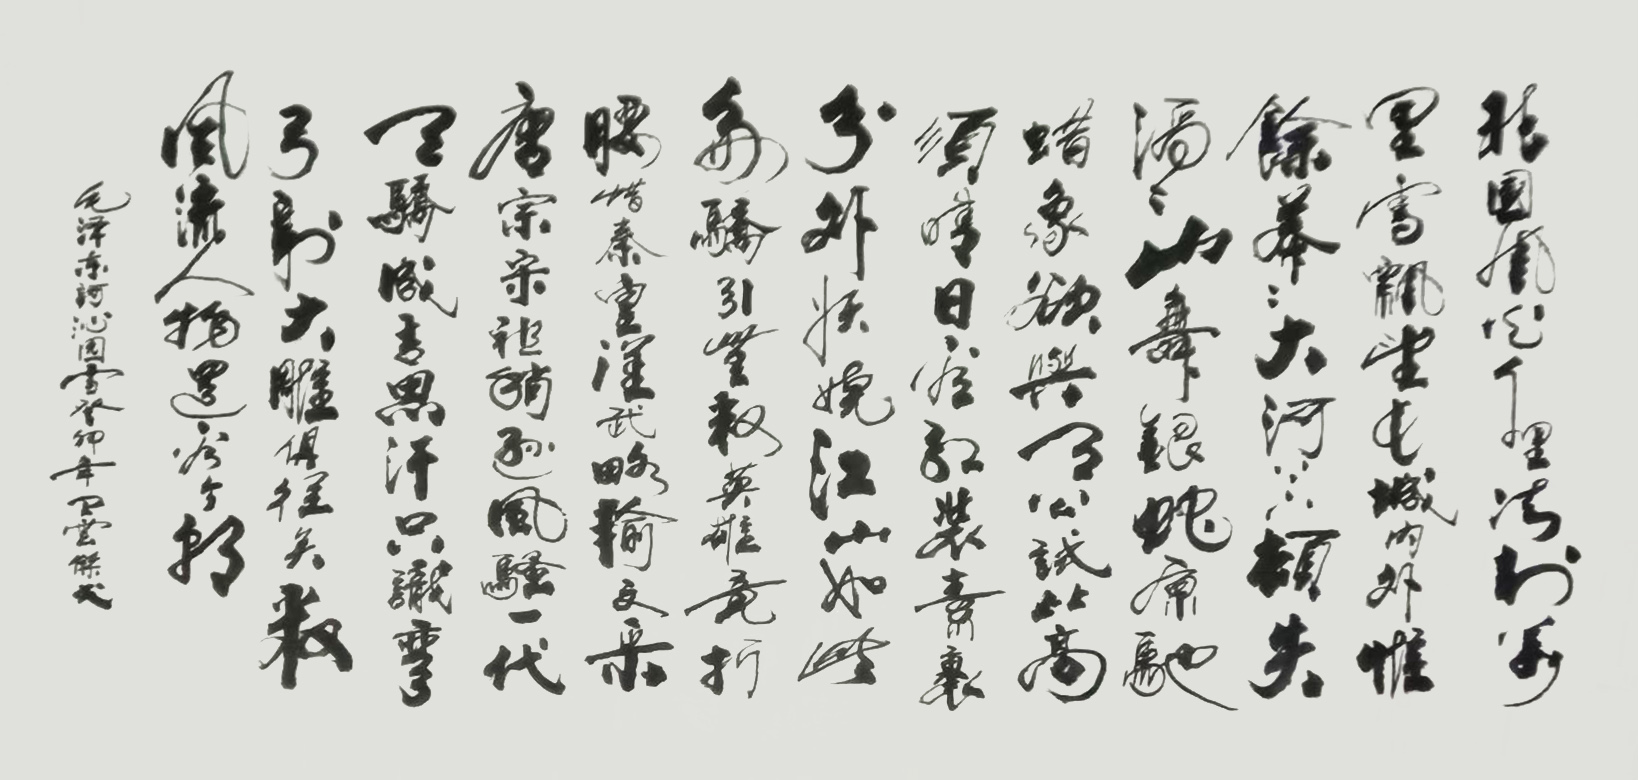 北國風光千里冰封萬
里雪飄望長城內外惟
餘莽〻大河上下頓失
滔〻山舞銀蛇原馳
蜡象欲與天公試比高
須晴日看紅裝素裹
分外妖嬈江山如此
多驕引無數英雄竟折
腰惜秦皇漢武略輸文采
唐宗宋祖稍遜風騷一代
天驕成吉思汗只識彎
弓射大雕俱往矣數
風流人物還看今朝
毛泽东詞沁园雪癸卯年雲傑